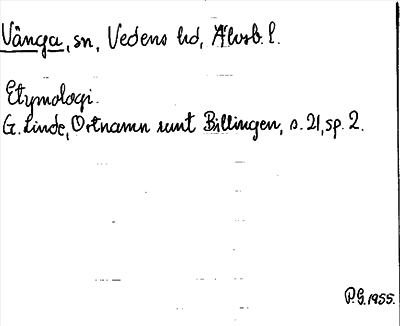 Vånga, sn, Vedens hd, Älvsb. l.
Etymologi.
G. Linde, Ortnamn runt Billingen, s. 21, sp. 2.
P.G. 1955.